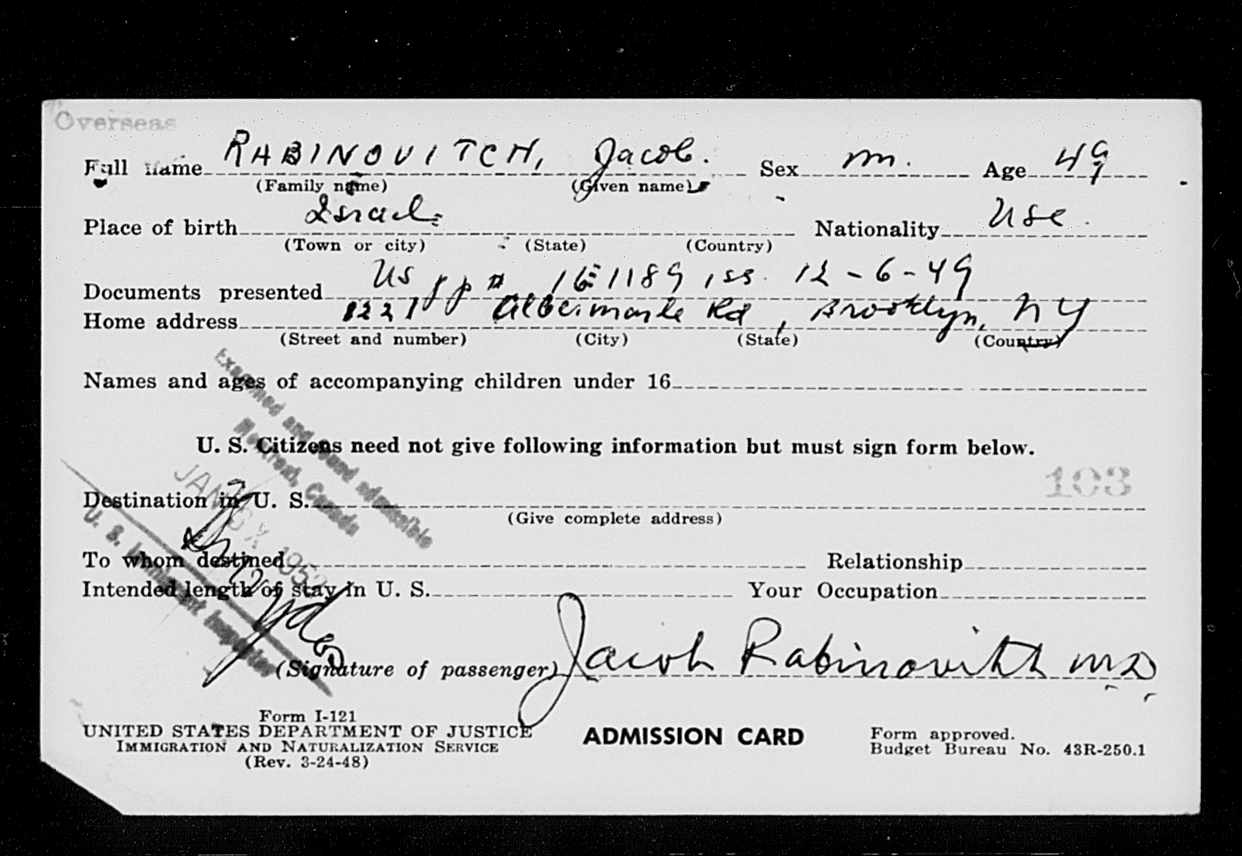 Overseas
Full name RABINOVITCH, Jacob. Sex m. Age 49
(Family name) (Given name)
Place of birth Israel Nationality USC
(Town or city) (State) (Country)
Documents presented US pp # 1E1189 iss. 12-6-49
Home address 1221 Albermarle Rd, Brooklyn, NY
(Street and number) (City) (State) (Country)
Names and ages of accompanying children under 16
Examined and found admissible
Montreal, Canada
JAN 1952
U. S. Immigrant Inspector
U. S. Citizens need not give following information but must sign form below.
103
Destination in U. S.
(Give complete address)
To whom destined Relationship
Intended length of stay in U. S. Your Occupation
(Signature of passenger) Jacob Rabinovitch MD
Form I-121
UNITED STATES DEPARTMENT OF JUSTICE
IMMIGRATION AND NATURALIZATION SERVICE
(Rev. 3-24-48)
ADMISSION CARD
Form approved.
Budget Bureau No. 43R-250.1